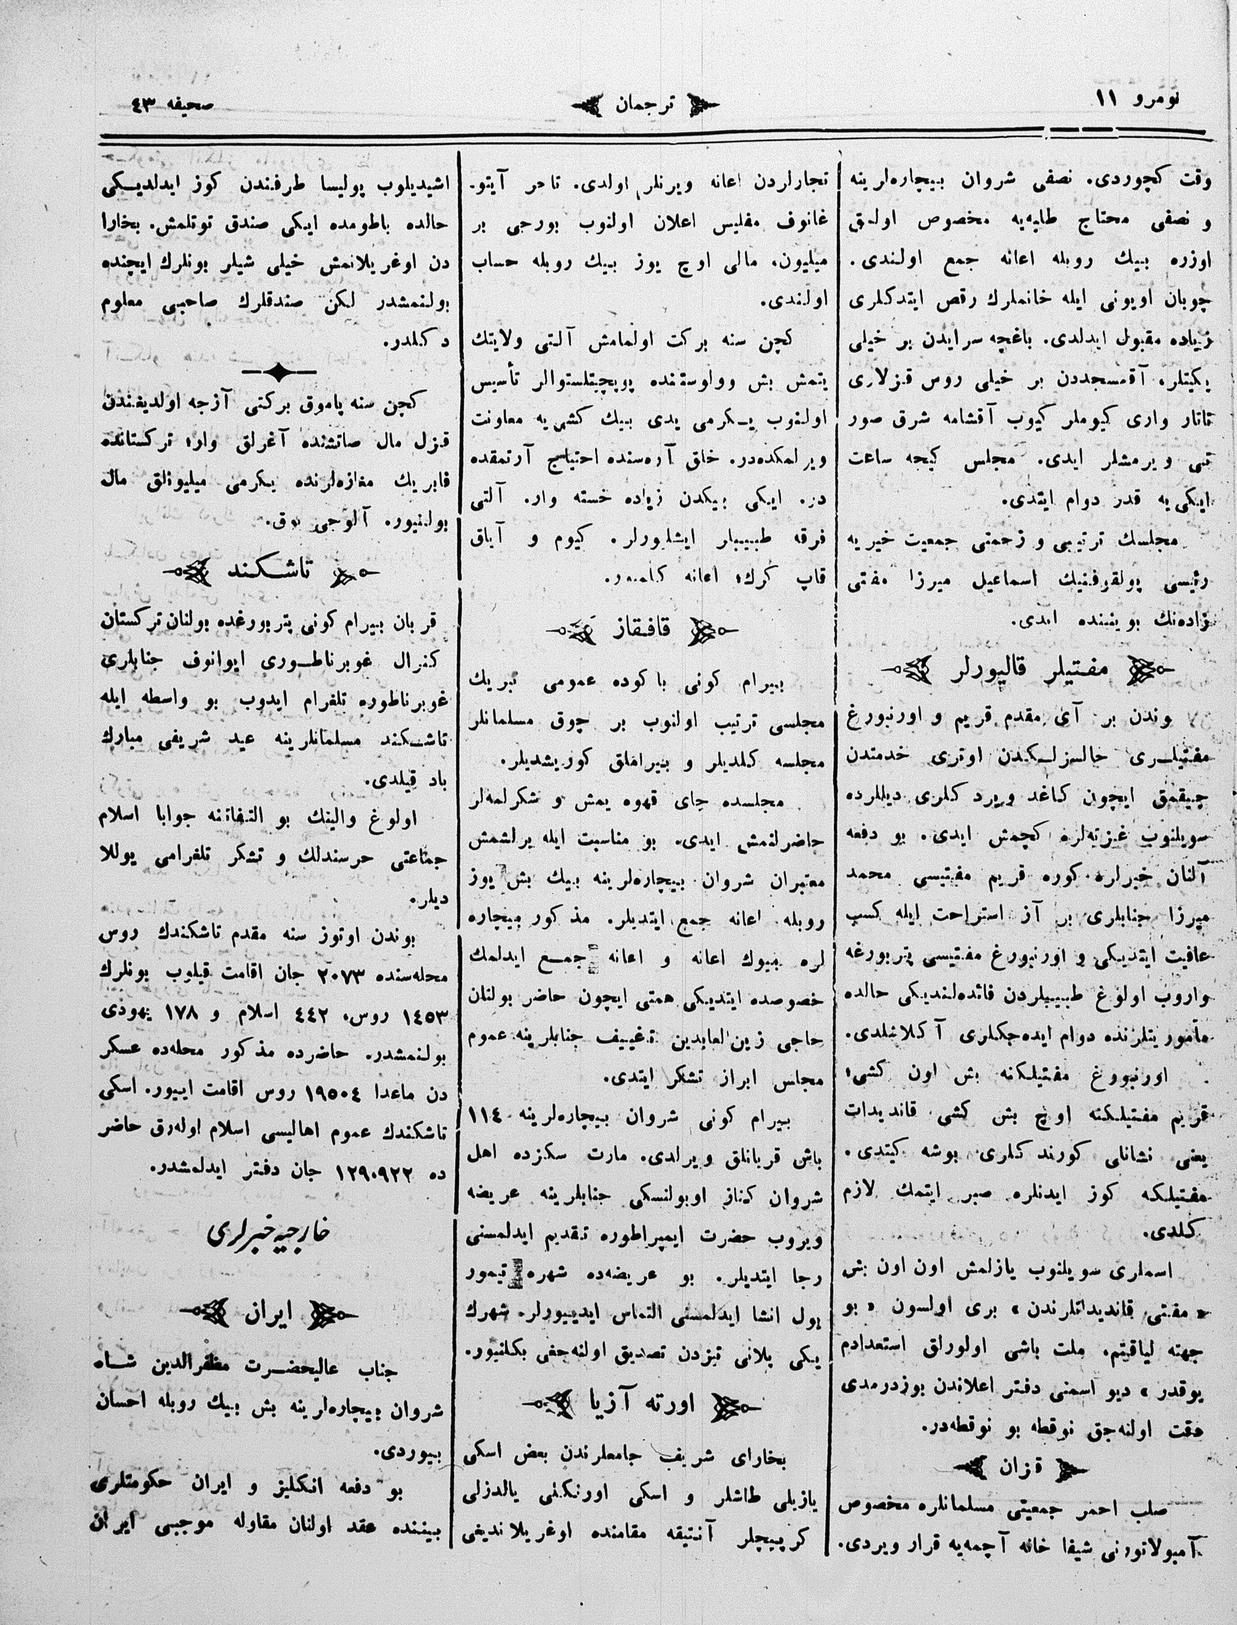 نومرو ١١
ترجمان
صحیفه ٤٣
وقت کچوردی. نصفی شروان بیچاره‌لرینه
و نصفی محتاج طلبه‌یه مخصوص اولمق
اوزره بیك روبله اعانه جمع اولندی.
چوبان اویونی ایله خانملرك رقص ایتدکلری
زیاده مقبول ایدلدی. باغچه سرایدن بر خیلی
یکیتلر، آقمسجددن بر خیلی روس قزلاری
تاتار واری کیوملر کیوب آقشامه شرق صور
تنی ویرمشلر ایدی. مجلس کیجه ساعت
ایکی‌یه قدر دوام ایتدی.
مجلسك ترتیبی و زحمتی جمعیت خیریه
رئیسی پولقوفنیك اسماعیل میرزا مفتی
زاده‌نك بویننده ایدی.
مفتیلر قالیورلر
بوندن بر آی مقدم قریم و اورنبورغ
مفتیلری حالسزلکدن اوتری خدمتدن
چیقمق ایچون کاغد ویردکلری دیللرده
سویلنوب غزیته‌لره کچمش ایدی. بو دفعه
آلنان خبرلره کوره قریم مفتیسی محمد
میرزا جنابلری بر آز استراحت ایله کسب
عافیت ایتدیکی و اورنبورغ مفتیسی پتربورغه
واروب اولوغ طبیبلردن فائده‌لندیکی حالده
مأموریتلرنده دوام ایده‌جکلری آکلاشلدی.
اورنبورغ مفتیلکنه بش اون کشی؛
قریم مفتیلکنه اوچ بش کشی قاندیدات
یعنی نشانلی کورندکلری بوشه کیتدی.
مفتیلکه کوز ایدنلره صبر ایتمك لازم
کلدی.
اسملری سویلنوب یازلمش اون اون بش
« مفتی قاندیداتلرندن » بری اولسون « بو
جهته لیاقتم، ملت باشی اولورلق استعدادم
یوقدر » دیو اسمنی دفتر اعلاندن بوزدرمدی
دقت اولنه‌جق نوقطه بو نوقطه‌در.
قزان
صلب احمر جمعیتی مسلمانلره مخصوص
آمبولاتورنی شیفا خانه آچمه‌یه قرار ویردی.
تجارلردن اعانه ویرنلر اولدی. تاجر آیتو.
غانوف مفلیس اعلان اولنوب بورجی بر
میلیون، مالی اوچ یوز بیك روبله حساب
اولندی.
کچن سنه برکت اولمامش آلتی ولایتك
یتمش بش وولوستنده پوپچیتلستوالر تأسیس
اولنوب یکرمی یدی بیك کشی‌یه معاونت
ویرلمکده‌در. خلق آره‌سنده احتیاج آرتمقده
در. ایکی بیکدن زیاده خسته وار. آلتی
فرقه طبیبلر ایشلیورلر. کیوم و آیاق
قاپ کرك؛ اعانه کلمیور.
قافقاز
بیرام کونی باکوده عمومی تبریك
مجلسی ترتیب اولنوب بر چوق مسلمانلر
مجلسه کلدیلر و بیراملق کوریشدیلر.
مجلسده چای قهوه یمش و شکرلمه‌لر
حاضرلنمش ایدی. بو مناسبت ایله یرلشمش
معتبران شروان بیچاره‌لرینه بیك بش یوز
روبله اعانه جمع ایتدیلر. مذکور بیچاره
لره بیوك اعانه و اعانه جمع ایدلمك
خصوصده ایتدیکی همتی ایچون حاضر بولنان
حاجی زین العابدین تغییف جنابلرینه عموم
مجلس ابراز تشکر ایتدی.
بیرام کونی شروان بیچاره‌لرینه ١١٤
باش قربانلق ویرلدی. مارت سکزده اهل
شروان کیناز اوبولنسکی جنابلرینه عریضه
ویروب حضرت ایمپراطوره تقدیم ایدلمسنی
رجا ایتدیلر. بو عریضه‌ده شهره تیمور
یول انشا ایدلمسنی التماس ایدییورلر. شهرك
یکی پلانی تیزدن تصدیق اولنه‌جغی بکلنیور.
اورته آزیا
بخارای شریف جامعلرندن بعض اسکی
یازیلی طاشلر و اسکی اورنکلی یالدزلی
کرپیچلر آنتیقه مقامنده اوغریلاندیغی
اشیدیلوب پولیسا طرفندن کوز ایدلدیکی
حالده باطومده ایکی صندق توتلمش. بخارا
دن اوغریلانمش خیلی شیلر بونلرك ایچنده
بولنمشدر لکن صندقلرك صاحبی معلوم
دکلدر.
کچن سنه پاموق برکتی آزجه اولدیغندن
قزل مال صاتشنده آغرلق وار؛ ترکستانده
فابریك مغازه‌لرنده یکرمی میلیونلق مال
بولنیور. آلوجی یوق.
تاشکند
قربان بیرام کونی پتربورغده بولنان ترکستان
کنرال غوبرناطوری ایوانوف جنابلری
غوبرناطوره تلغرام ایدوب بو واسطه ایله
تاشکند مسلمانلرینه عید شریفی مبارك
باد قیلدی.
اولوغ والینك بو التفاتنه جوابا اسلام
جماعتی خرسندلك و تشکر تلغرامی یوللا
دیلر.
بوندن اوتوز سنه مقدم تاشکندك روس
محله‌سنده ٢٠٧٣ جان اقامت قیلوب بونلرك
١٤٥٣ روس، ٤٤٢ اسلام و ١٧٨ یهودی
بولنمشدر. حاضرده مذکور محله‌ده عسکر
دن ماعدا ١٩٥٠٤ روس اقامت ایییور. اسکی
تاشکندك عموم اهالیسی اسلام اوله‌رق حاضر
ده ١٢٩٠٩٢٢ جان دفتر ایدلمشدر.
خارجیه خبرلری
ایران
جناب عالیحضرت مظفرالدین شاه
شروان بیچاره‌لرینه بش بیك روبله احسان
بیوردی.
بو دفعه انکلیز و ایران حکومتلری
بیننده عقد اولنان مقاوله موجبی ایران